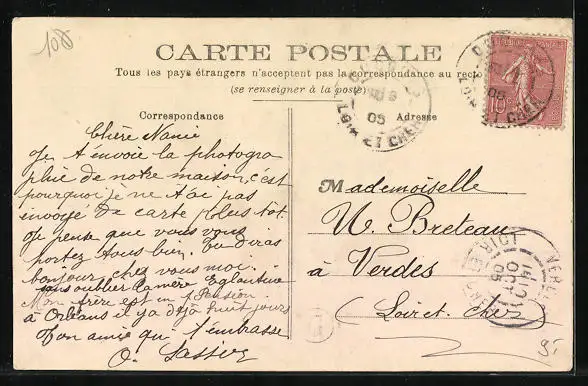 100
CARTE POSTALE
Tous les pays étrangers n'acceptent pas la correspondance au recto
(se renseigner à la poste)
Correspondance
Adresse
Chère Nanie
Je t'envoie la photogra
phie de notre maison, c'est
pourquoi je ne t'ai pas
envoyé de carte plus tot.
Je pense que vous vous
portez tous bien. Tu diras
bonjour chez vous moi.
sans oublier la mère Eglantine
Mon frère est en Pension
à Orléans il y a déjà huit jours
Ton ami qui t'embrasse
O.
Mademoiselle
M. Breteau
à Verdes
(Loir et Cher
05
LOIR ET CHER
10
05
LOIR ET CHER
VERDES
OCT
05
LOIR ET CHER